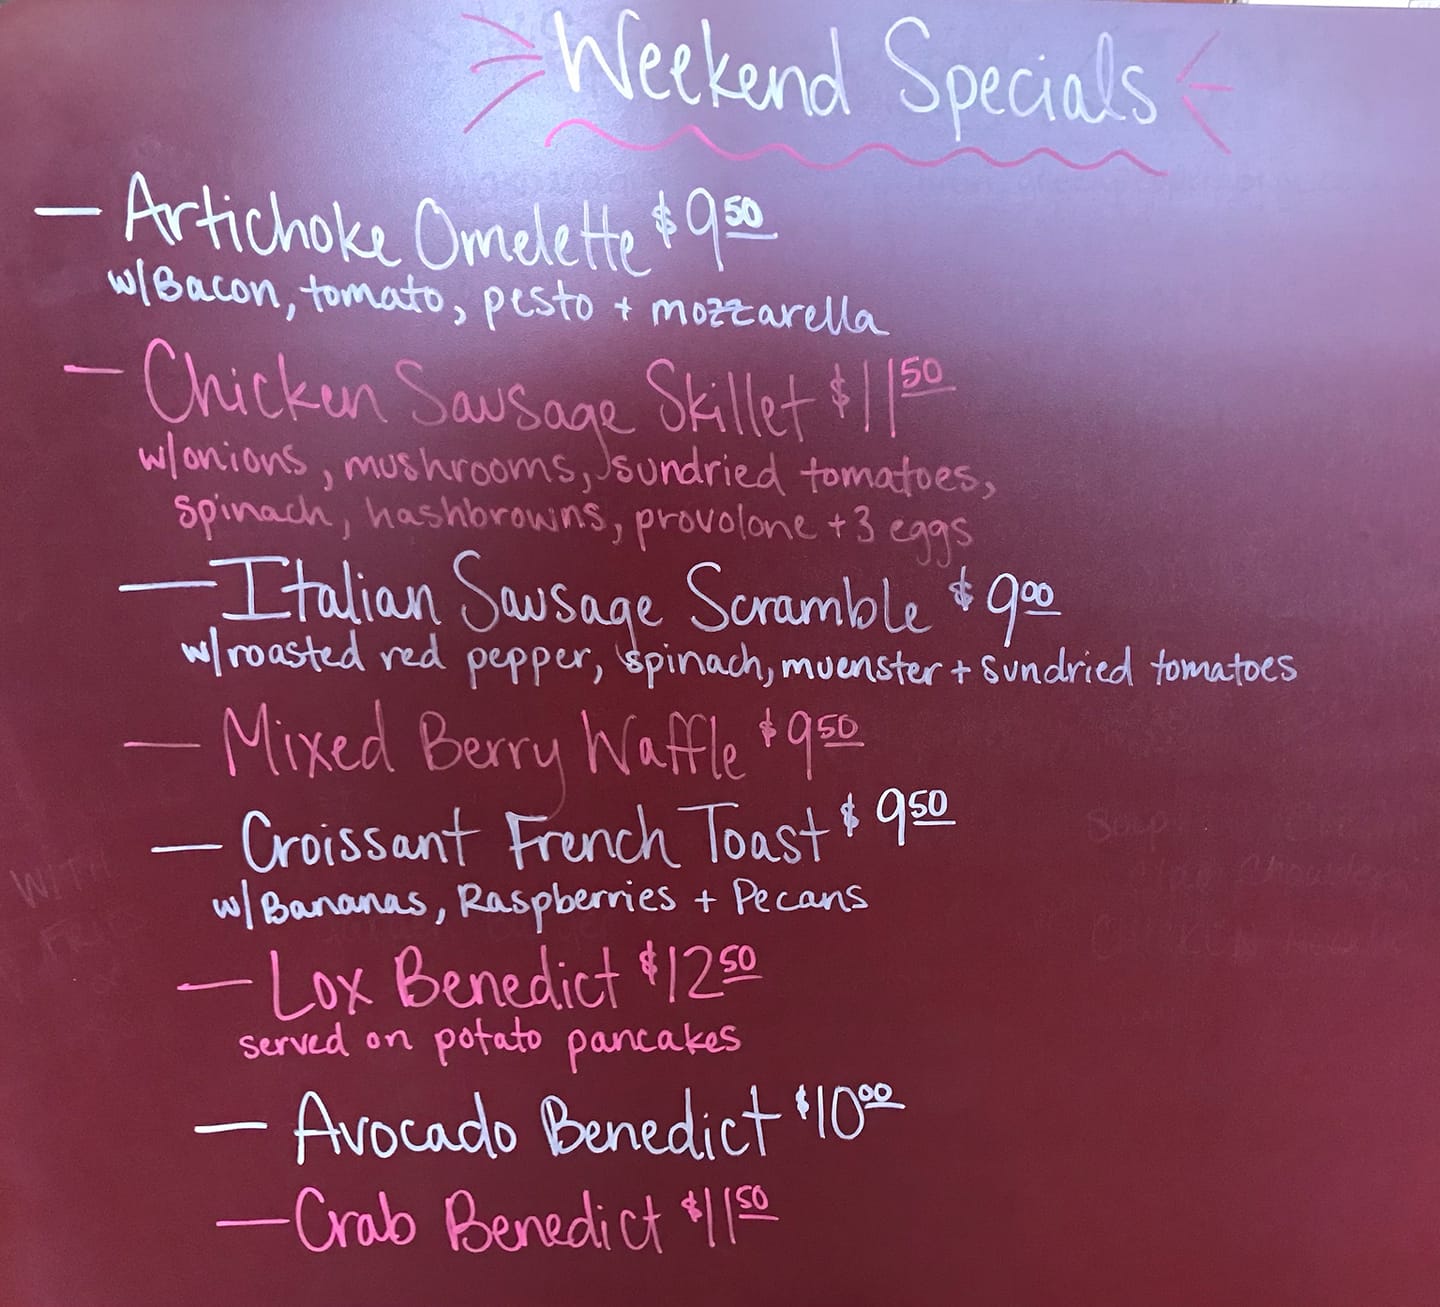 Weekend Specials
— Artichoke Omelette $9.50
w/Bacon, tomato, pesto + mozzarella
— Chicken Sausage Skillet $11.50
w/onions, mushrooms, sundried tomatoes,
spinach, hashbrowns, provolone + 3 eggs
— Italian Sausage Scramble $9.00
w/roasted red pepper, spinach, muenster + sundried tomatoes
— Mixed Berry Waffle $9.50
— Croissant French Toast $9.50
w/Bananas, Raspberries + Pecans
— Lox Benedict $12.50
served on potato pancakes
— Avocado Benedict $10.00
— Crab Benedict $11.50